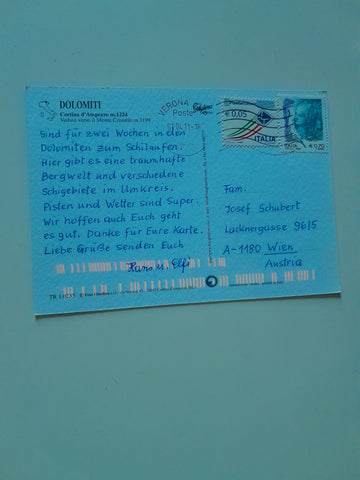 DOLOMITI
Cortina d'Ampezzo m.1224
Veduta verso il Monte Cristallo m.3199
Sind für zwei Wochen in den
Dolomiten zum Schilaufen.
Hier gibt es eine traumhafte
Bergwelt und verschiedene
Schigebiete im Umkreis.
Pisten und Wetter sind Super.
Wir hoffen auch Euch geht
es gut. Danke für Eure Karte.
Liebe Grüße senden Euch
Hans u. Elfi
VERONA
Poste
€ 0,05
ITALIA
ITALIA
€ 0,70
Fam.
Josef Schubert
Lacknergasse 96/5
A-1180 Wien
Austria